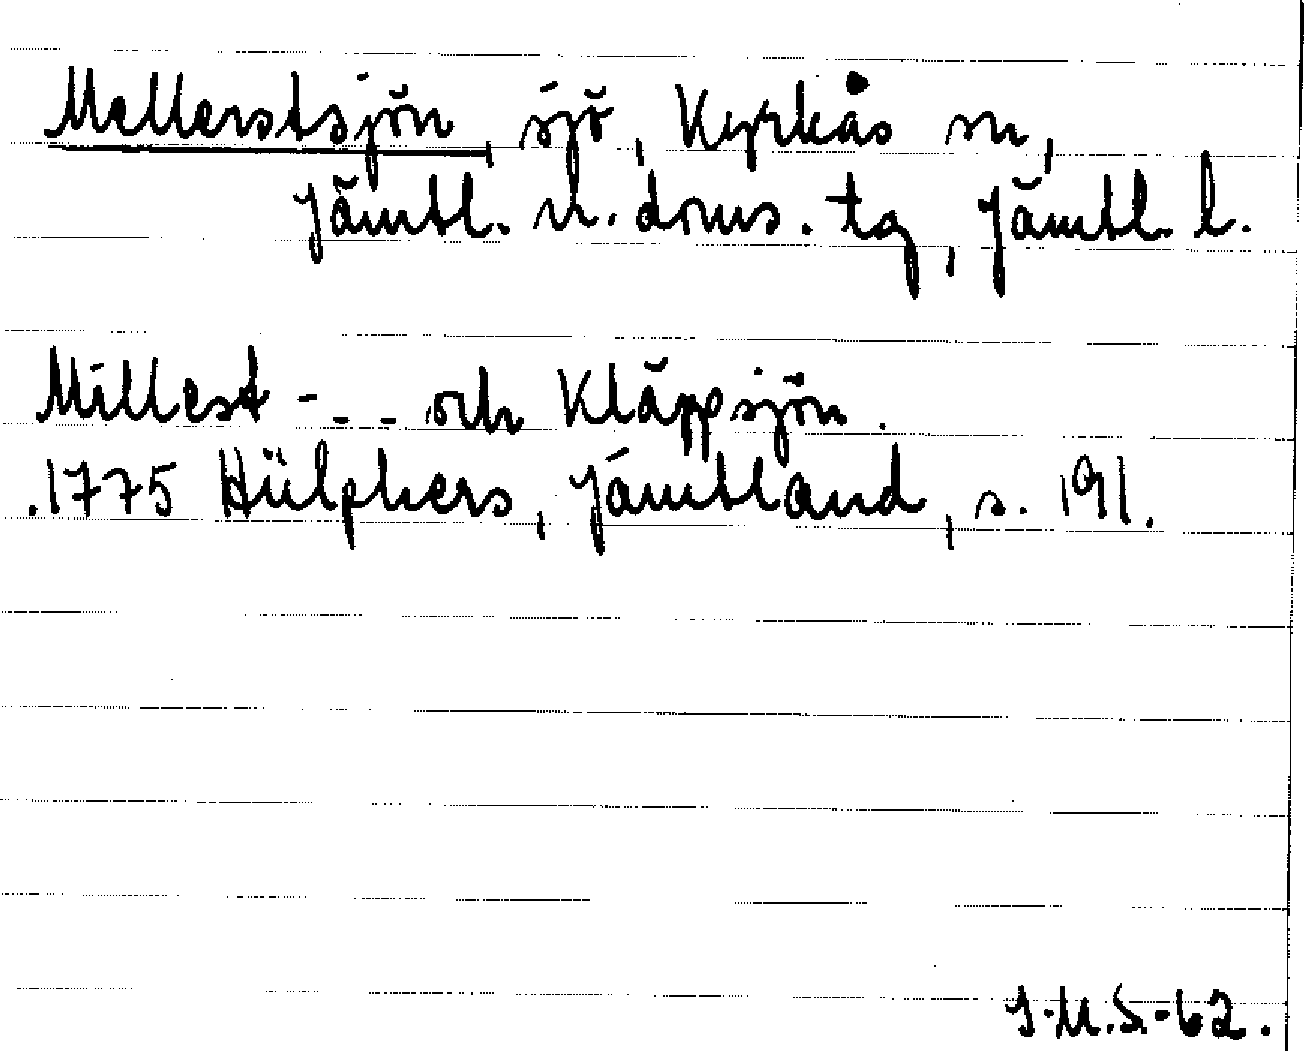 Mellerstsjön, sjö, Kyrkås sn,
Jämtl. n. doms. tg, Jämtl. l.
Millest - - - och Kläppsjön.
1775 Hülphers, Jämtland, s. 191.
I-M.S.-62.